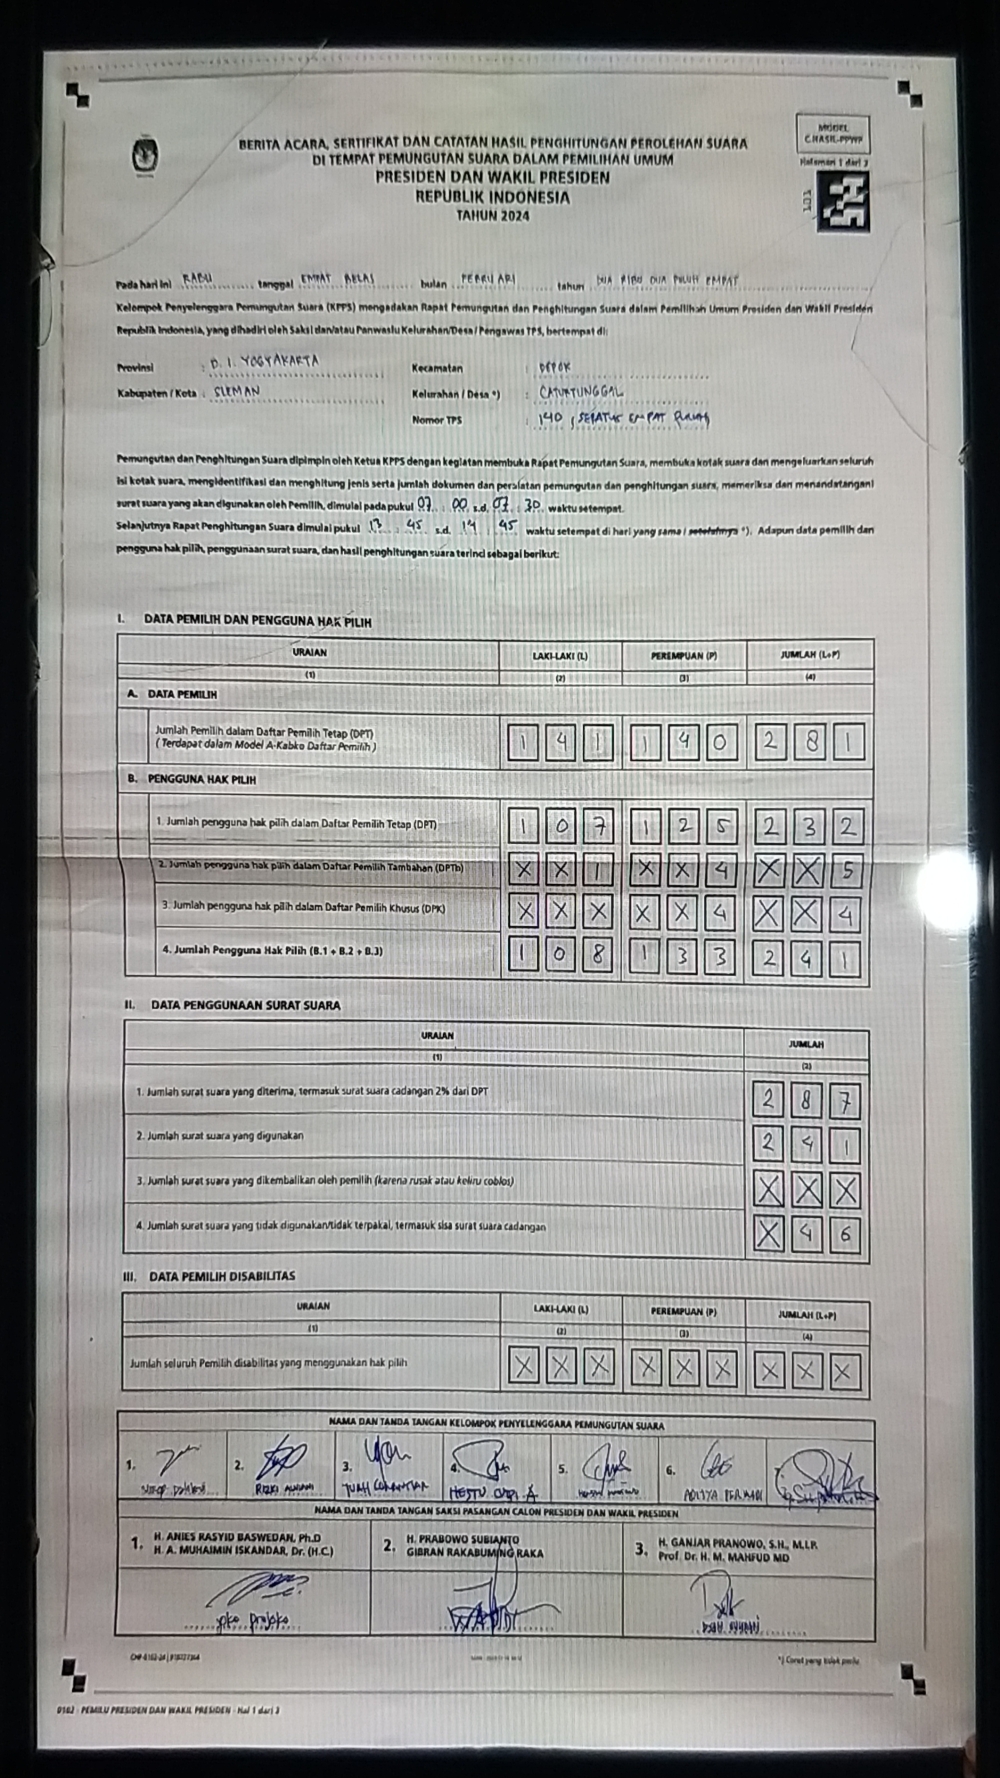 MODEL
C.HASIL-PPWP
Halaman 1 dari 3
BERITA ACARA, SERTIFIKAT DAN CATATAN HASIL PENGHITUNGAN PEROLEHAN SUARA
DI TEMPAT PEMUNGUTAN SUARA DALAM PEMILIHAN UMUM
PRESIDEN DAN WAKIL PRESIDEN
REPUBLIK INDONESIA
TAHUN 2024
Pada hari ini RABU tanggal EMPAT BELAS bulan FEBRUARI tahun DUA RIBU DUA PULUH EMPAT
Kelompok Penyelenggara Pemungutan Suara (KPPS) mengadakan Rapat Pemungutan dan Penghitungan Suara dalam Pemilihan Umum Presiden dan Wakil Presiden
Republik Indonesia, yang dihadiri oleh Saksi dan/atau Panwaslu Kelurahan/Desa/Pengawas TPS, bertempat di:
Provinsi : D. I. YOGYAKARTA Kecamatan : DEPOK
Kabupaten / Kota : SLEMAN Kelurahan / Desa *) : CATURTUNGGAL
Nomor TPS : 140 (SERATUS EMPAT PULUH)
Pemungutan dan Penghitungan Suara dipimpin oleh Ketua KPPS dengan kegiatan membuka Rapat Pemungutan Suara, membuka kotak suara dan mengeluarkan seluruh
isi kotak suara, mengidentifikasi dan menghitung jenis serta jumlah dokumen dan peralatan pemungutan dan penghitungan suara, memeriksa dan menandatangani
surat suara yang akan digunakan oleh Pemilih, dimulai pada pukul 07 : 00 s.d. 07 : 30 waktu setempat.
Selanjutnya Rapat Penghitungan Suara dimulai pukul 13 : 45 s.d. 14 : 45 waktu setempat di hari yang sama / setelahnya *). Adapun data pemilih dan
pengguna hak pilih, penggunaan surat suara, dan hasil penghitungan suara terinci sebagai berikut:
I. DATA PEMILIH DAN PENGGUNA HAK PILIH
URAIAN LAKI-LAKI (L) PEREMPUAN (P) JUMLAH (L+P)
(1) (2) (3) (4)
A. DATA PEMILIH
Jumlah Pemilih dalam Daftar Pemilih Tetap (DPT)
(Terdapat dalam Model A-Kabko Daftar Pemilih) 1 4 1 1 4 0 2 8 1
B. PENGGUNA HAK PILIH
1. Jumlah pengguna hak pilih dalam Daftar Pemilih Tetap (DPT) 1 0 7 1 2 5 2 3 2
2. Jumlah pengguna hak pilih dalam Daftar Pemilih Tambahan (DPTb) X X 1 X X 4 X X 5
3. Jumlah pengguna hak pilih dalam Daftar Pemilih Khusus (DPK) X X X X X 4 X X 4
4. Jumlah Pengguna Hak Pilih (B.1 + B.2 + B.3) 1 0 8 1 3 3 2 4 1
II. DATA PENGGUNAAN SURAT SUARA
URAIAN JUMLAH
(1) (2)
1. Jumlah surat suara yang diterima, termasuk surat suara cadangan 2% dari DPT 2 8 7
2. Jumlah surat suara yang digunakan 2 4 1
3. Jumlah surat suara yang dikembalikan oleh pemilih (karena rusak atau keliru coblos) X X X
4. Jumlah surat suara yang tidak digunakan/tidak terpakai, termasuk sisa surat suara cadangan X 4 6
III. DATA PEMILIH DISABILITAS
URAIAN LAKI-LAKI (L) PEREMPUAN (P) JUMLAH (L+P)
(1) (2) (3) (4)
Jumlah seluruh Pemilih disabilitas yang menggunakan hak pilih X X X X X X X X X
NAMA DAN TANDA TANGAN KELOMPOK PENYELENGGARA PEMUNGUTAN SUARA
1. 2. 3. 4. 5. 6. 7.
RIZKI HESTU A ADITYA
NAMA DAN TANDA TANGAN SAKSI PASANGAN CALON PRESIDEN DAN WAKIL PRESIDEN
1. H. ANIES RASYID BASWEDAN, Ph.D
H. A. MUHAIMIN ISKANDAR, Dr. (H.C.)
2. H. PRABOWO SUBIANTO
GIBRAN RAKABUMING RAKA
3. H. GANJAR PRANOWO, S.H., M.I.P.
Prof. Dr. H. M. MAHFUD MD
*) Coret yang tidak perlu
0162 - PEMILU PRESIDEN DAN WAKIL PRESIDEN - Hal 1 dari 3